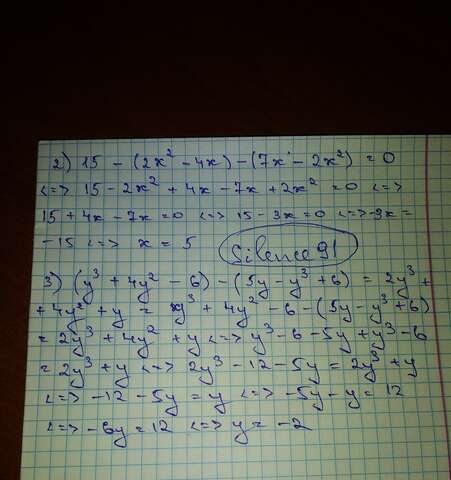 2) 15 - (2x² - 4x) - (7x - 2x²) = 0
<=> 15 - 2x² + 4x - 7x + 2x² = 0 <=>
15 + 4x - 7x = 0 <=> 15 - 3x = 0 <=> -3x =
-15 <=> x = 5
Silence 91
3) (y³ + 4y² - 6) - (5y - y³ + 6) = 2y³ +
+ 4y² + y = y³ + 4y² - 6 - (5y - y³ + 6)
= 2y³ + 4y² + y <=> y³ - 6 - 5y + y³ - 6
= 2y³ + y <=> 2y³ - 12 - 5y = 2y³ + y
<=> -12 - 5y = y <=> -5y - y = 12
<=> -6y = 12 <=> y = -2